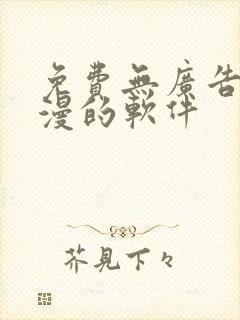 免費無廣告
漫的軟件
芥見下々